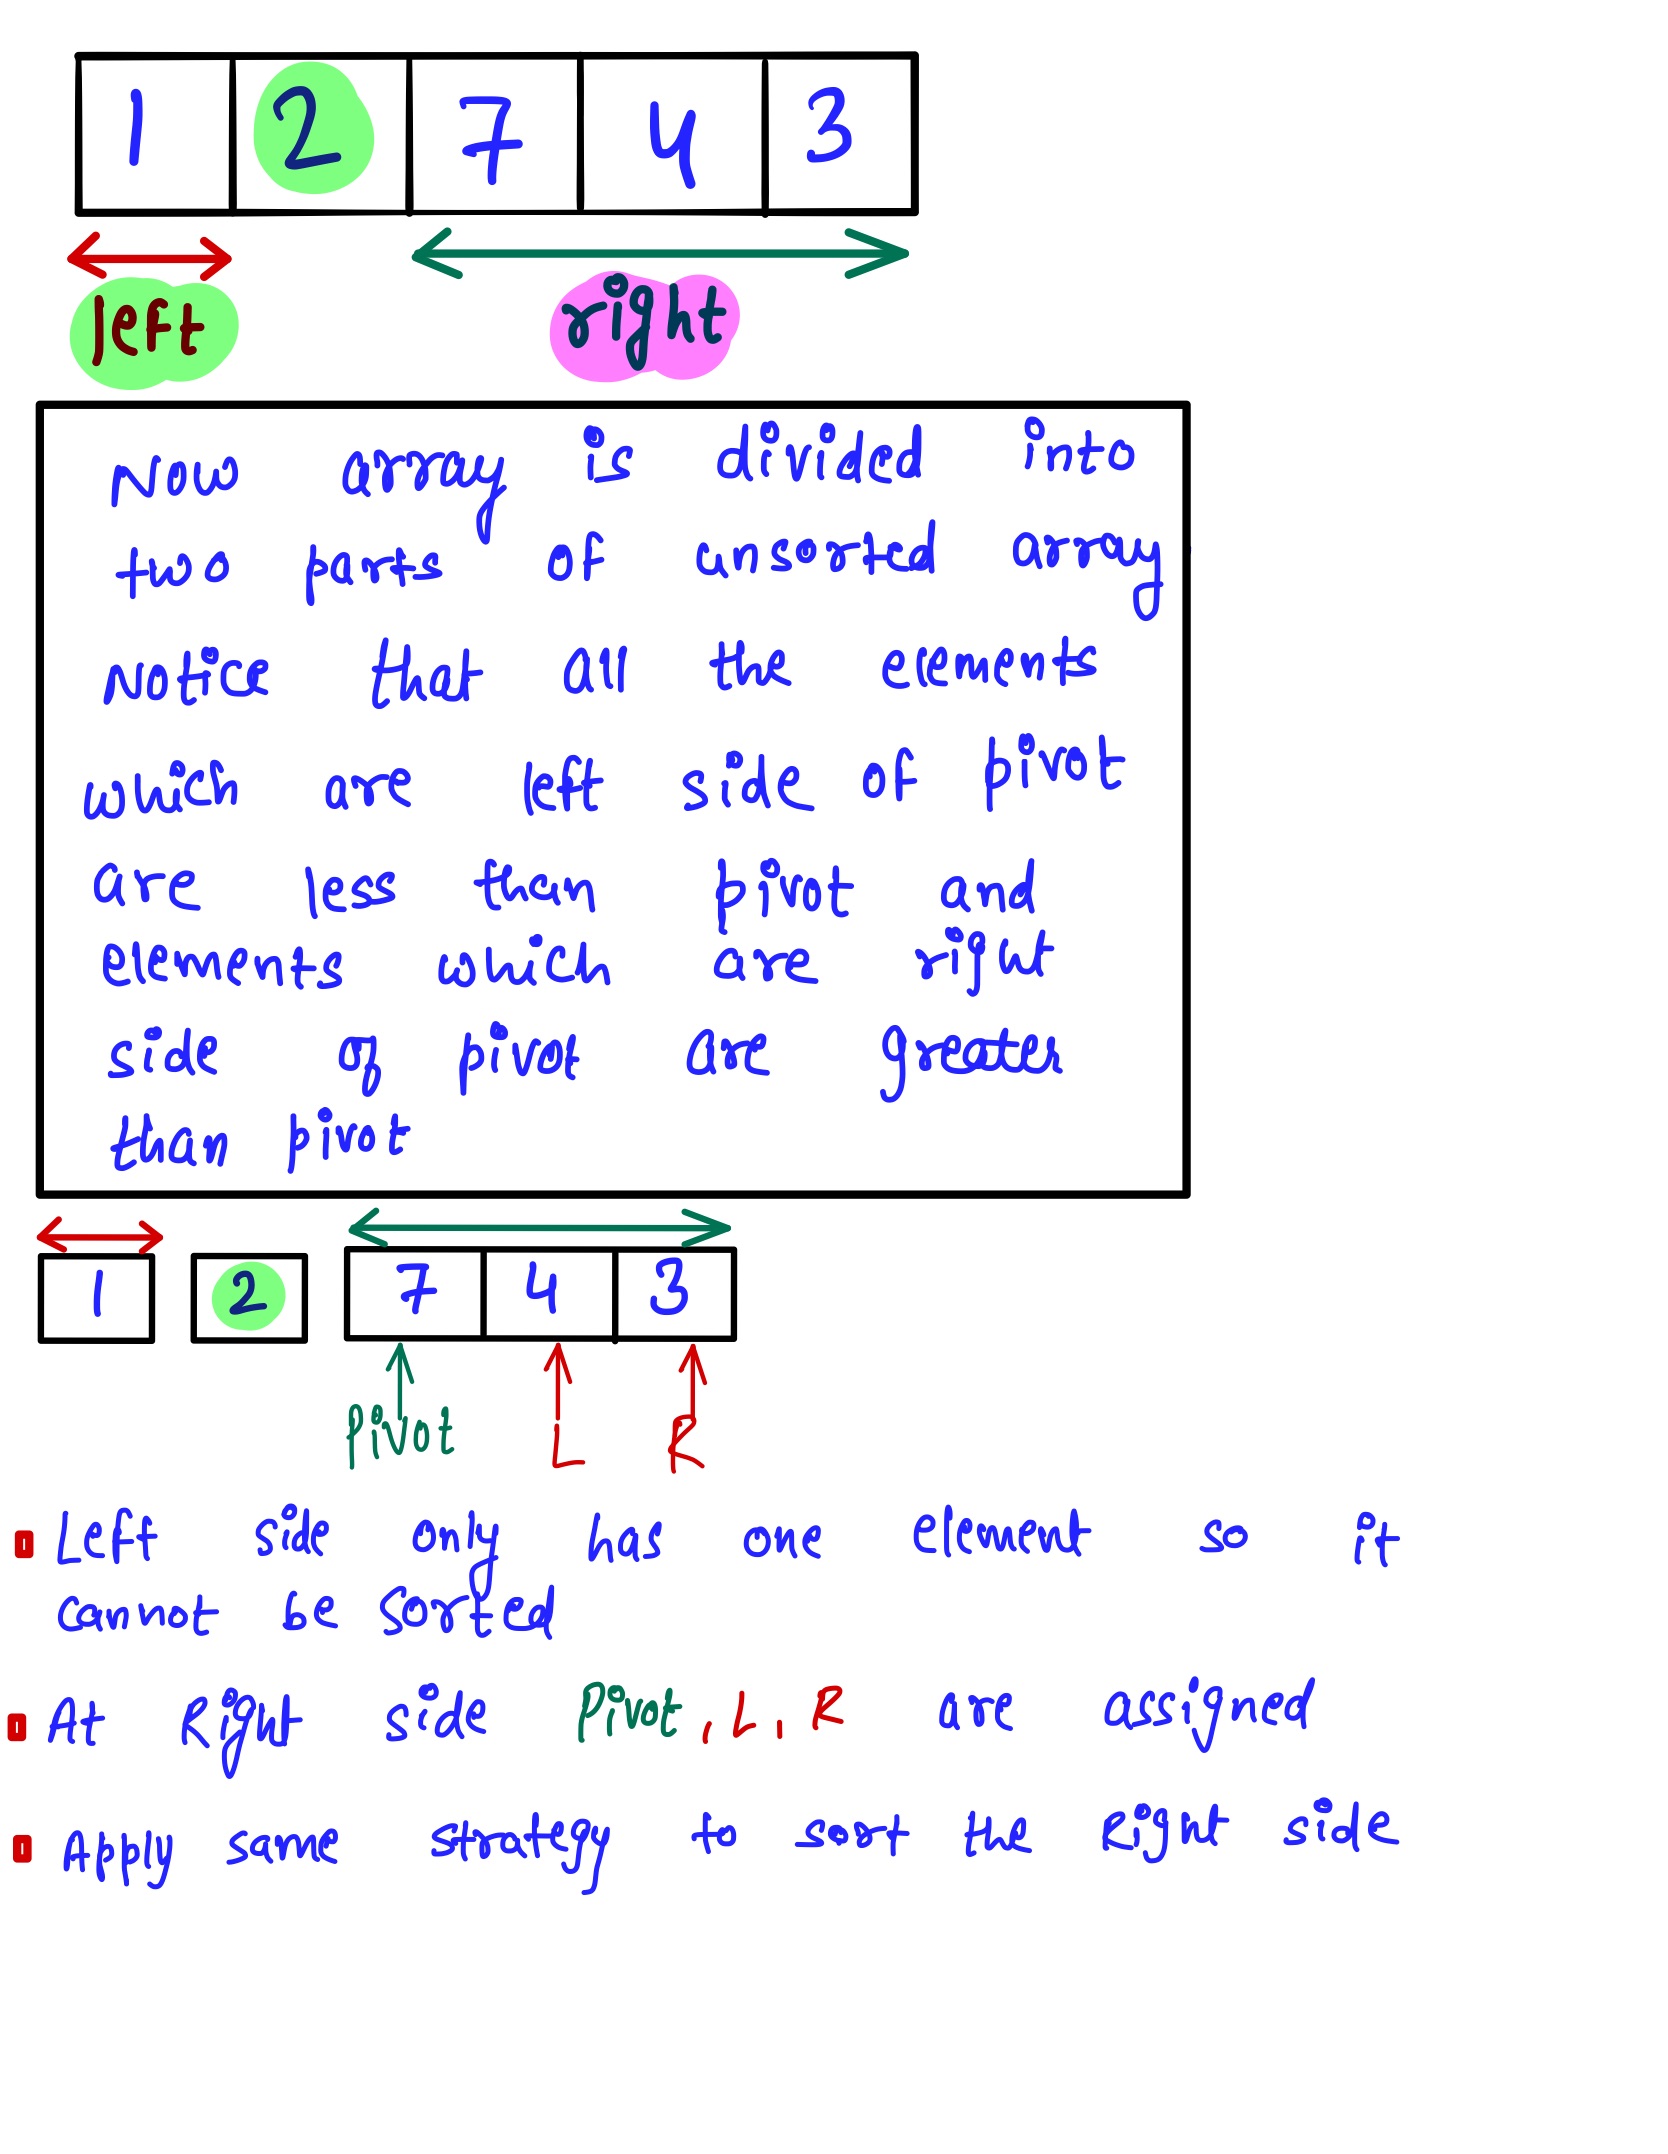 1 2 7 4 3
left right
Now array is divided into
two parts of unsorted array
Notice that all the elements
which are left side of pivot
are less than pivot and
elements which are right
side of pivot are greater
than pivot
1 2 7 4 3
Pivot L R
Left side only has one element so it
cannot be sorted
At Right side Pivot, L, R are assigned
Apply same strategy to sort the Right side